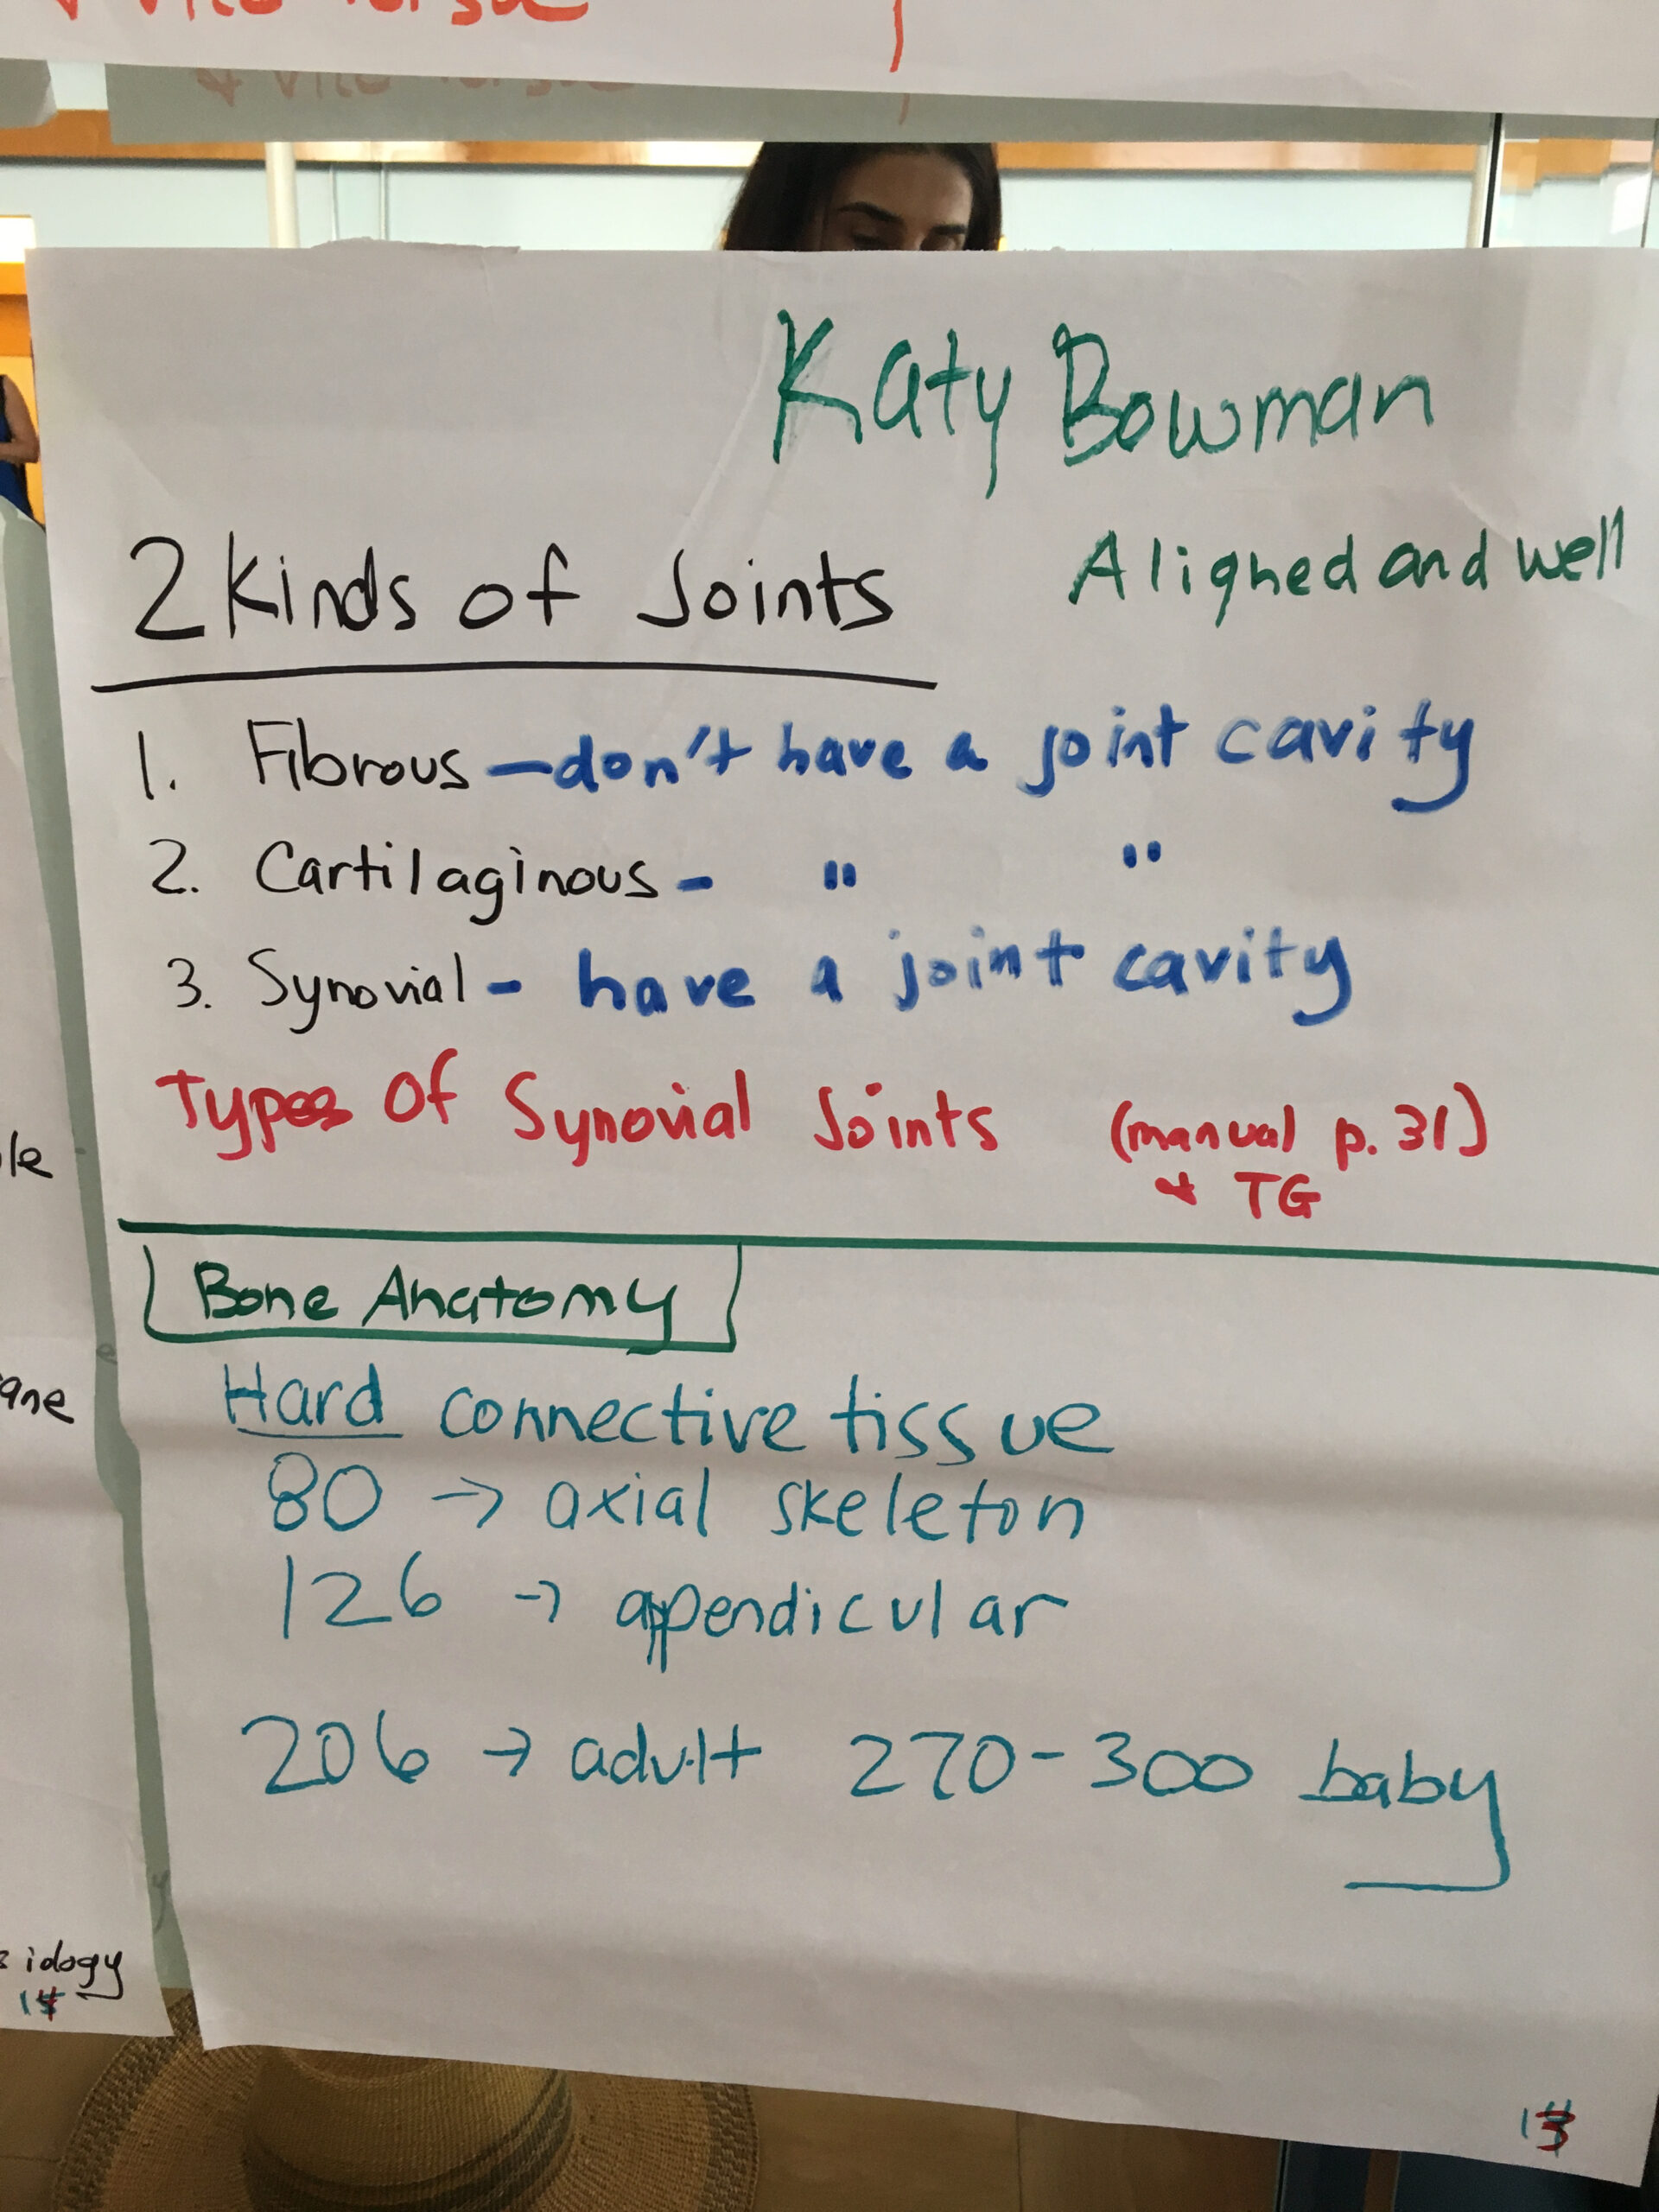 Katy Bowman
Aligned and well
2 Kinds of Joints
1. Fibrous - don't have a joint cavity
2. Cartilaginous - " "
3. Synovial - have a joint cavity
Types Of Synovial Joints (manual p. 31)
+ TG
Bone Anatomy
Hard connective tissue
80 → axial skeleton
126 → appendicular
206 → adult 270-300 baby
13